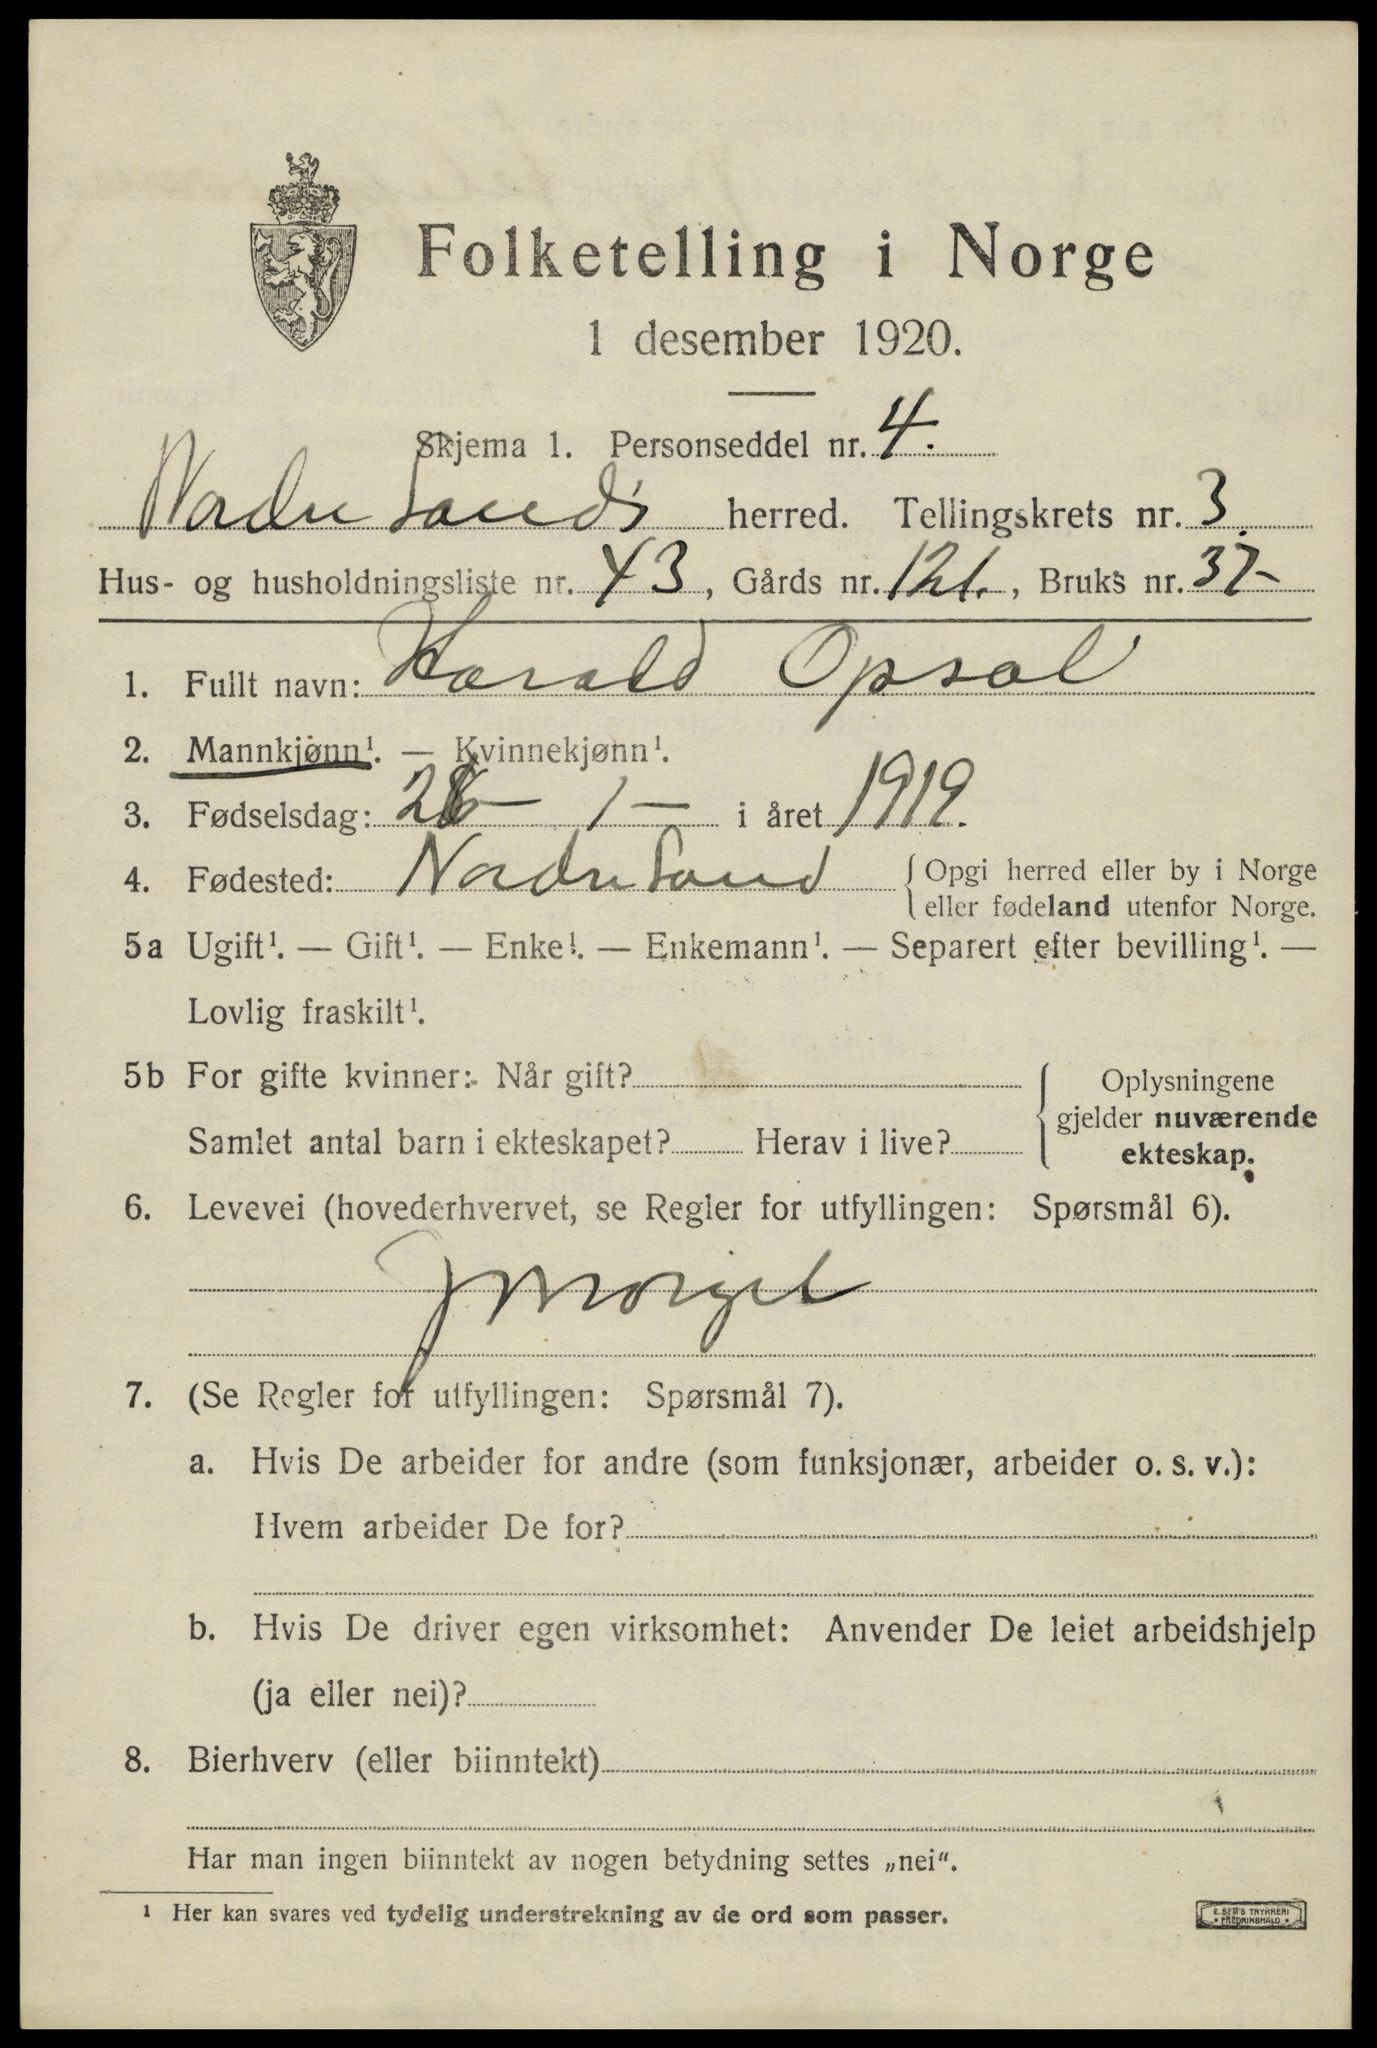 Folketelling i Norge
1 desember 1920.
Skjema 1. Personseddel nr. 4.
Nordre Land's herred. Tellingskrets nr. 3.
Hus- og husholdningsliste nr. 43, Gårds nr. 121., Bruks nr. 37-
1. Fullt navn: Harald Opsal
2. Mannkjønn¹. — Kvinnekjønn¹.
3. Fødselsdag: 26- 1- i året 1919.
4. Fødested: Nordre Land { Opgi herred eller by i Norge
eller fødeland utenfor Norge.
5a Ugift¹. — Gift¹. — Enke¹. — Enkemann¹. — Separert efter bevilling¹. —
Lovlig fraskilt¹.
5b For gifte kvinner: Når gift?
Samlet antal barn i ekteskapet? Herav i live?
Oplysningene
gjelder nuværende
ekteskap.
6. Levevei (hovederhvervet, se Regler for utfyllingen: Spørsmål 6).
7. (Se Regler for utfyllingen: Spørsmål 7).
a. Hvis De arbeider for andre (som funksjonær, arbeider o. s. v.):
Hvem arbeider De for?
b. Hvis De driver egen virksomhet: Anvender De leiet arbeidshjelp
(ja eller nei)?
8. Bierhverv (eller biinntekt)
Har man ingen biinntekt av nogen betydning settes „nei“.
¹ Her kan svares ved tydelig understrekning av de ord som passer.
E. SEM'S TRYKKERI
• FREDRIKSHALD •